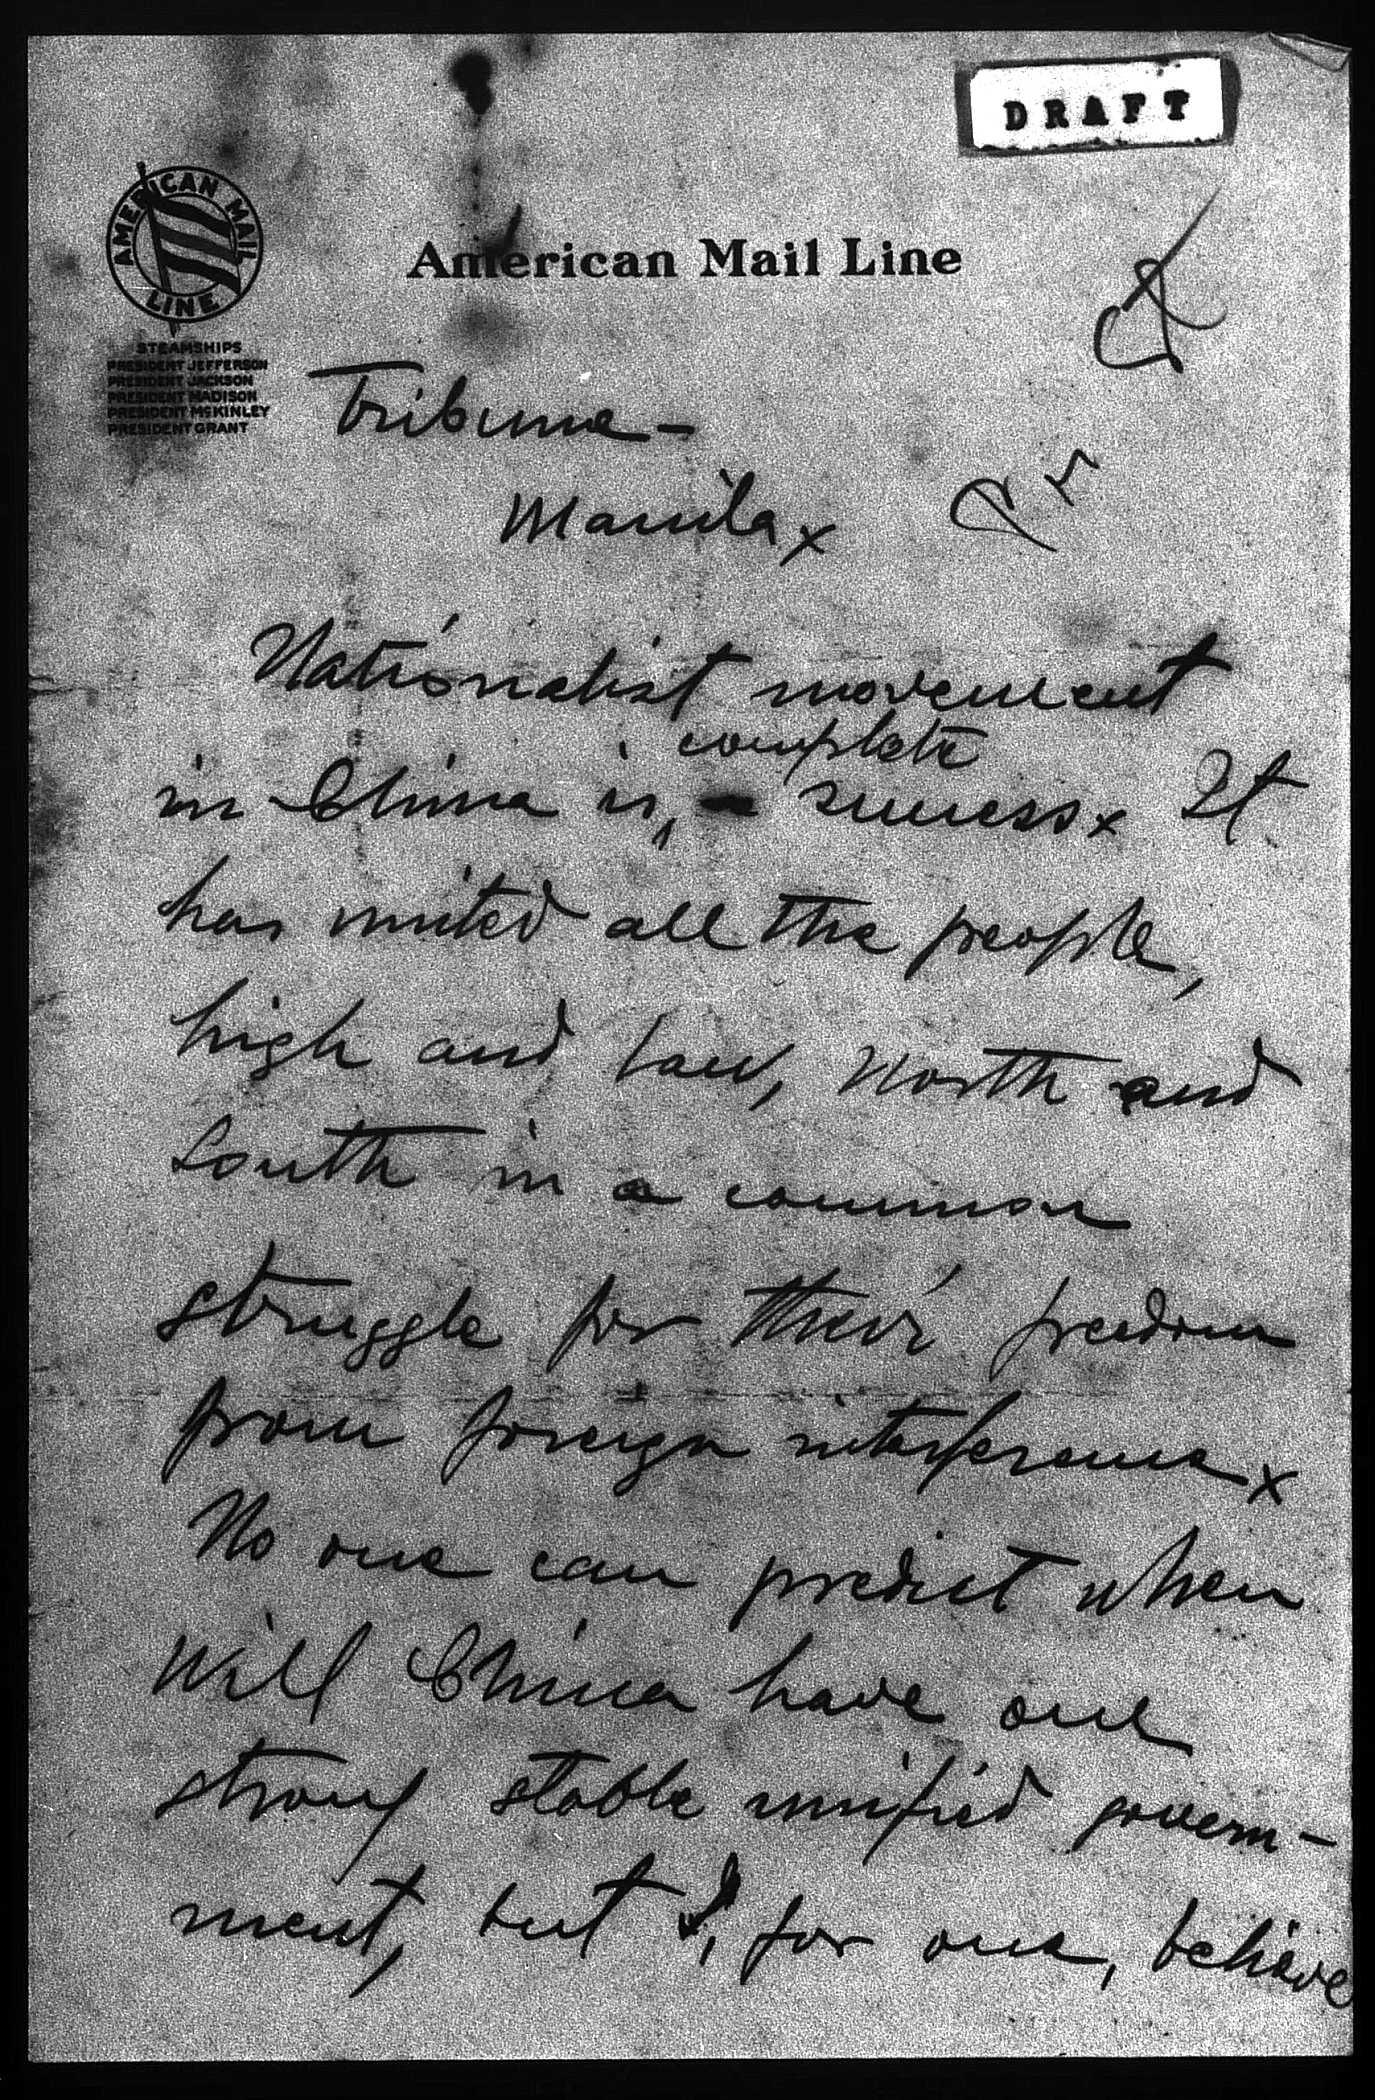 DRAFT
AMERICAN MAIL LINE
American Mail Line
STEAMSHIPS
PRESIDENT JEFFERSON
PRESIDENT JACKSON
PRESIDENT MADISON
PRESIDENT McKINLEY
PRESIDENT GRANT
Tribune-
Manila x
Nationalist movement
complete
in China is success x It
has united all the people,
high and low, North and
South in a common
struggle for their freedom
from foreign interference x
No one can predict when
will China have one
strong stable unified govern-
ment, but I, for one, believe